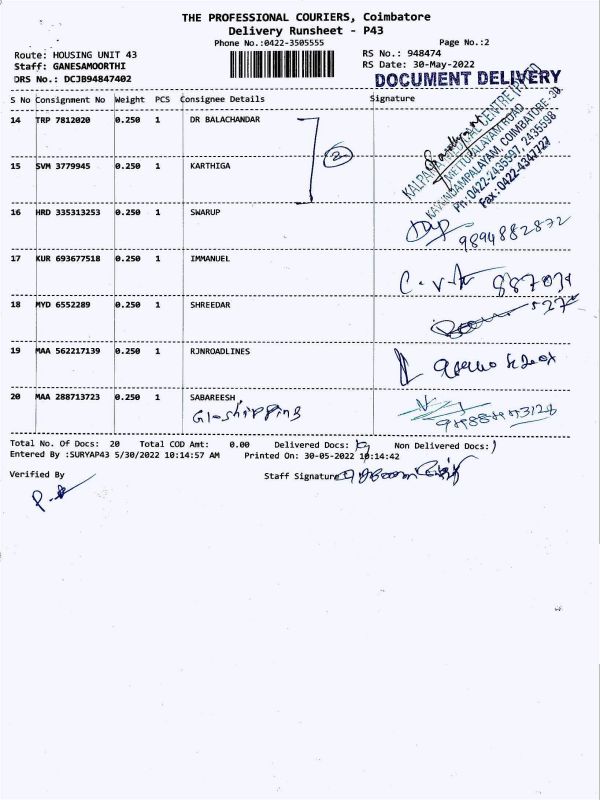 THE PROFESSIONAL COURIERS, Coimbatore
Delivery Runsheet - P43
Phone No.:0422-3505555
Page No.:2
Route: HOUSING UNIT 43
RS No.: 948474
Staff: GANESAMOORTHI
RS Date: 30-May-2022
DRS No.: DCJB94847402
DOCUMENT DELIVERY
S No Consignment No Weight PCS Consignee Details Signature
14 TRP 7812020 0.250 1 DR BALACHANDAR
2
KALPANA MEDICAL CENTRE (P) LTD
METTUPALAYAM ROAD
KAVUNDAMPALAYAM, COIMBATORE-30.
Ph: 0422-2435597, 2435598
Fax: 0422-4347727
15 SVM 3779945 0.250 1 KARTHIGA
16 HRD 335313253 0.250 1 SWARUP
9894882872
17 KUR 693677518 0.250 1 IMMANUEL
18 MYD 6552289 0.250 1 SHREEDAR
19 MAA 562217139 0.250 1 RJNROADLINES
20 MAA 288713723 0.250 1 SABAREESH
Total No. Of Docs: 20 Total COD Amt: 0.00 Delivered Docs: Non Delivered Docs:
Entered By :SURYAP43 5/30/2022 10:14:57 AM Printed On: 30-05-2022 10:14:42
Verified By
Staff Signature